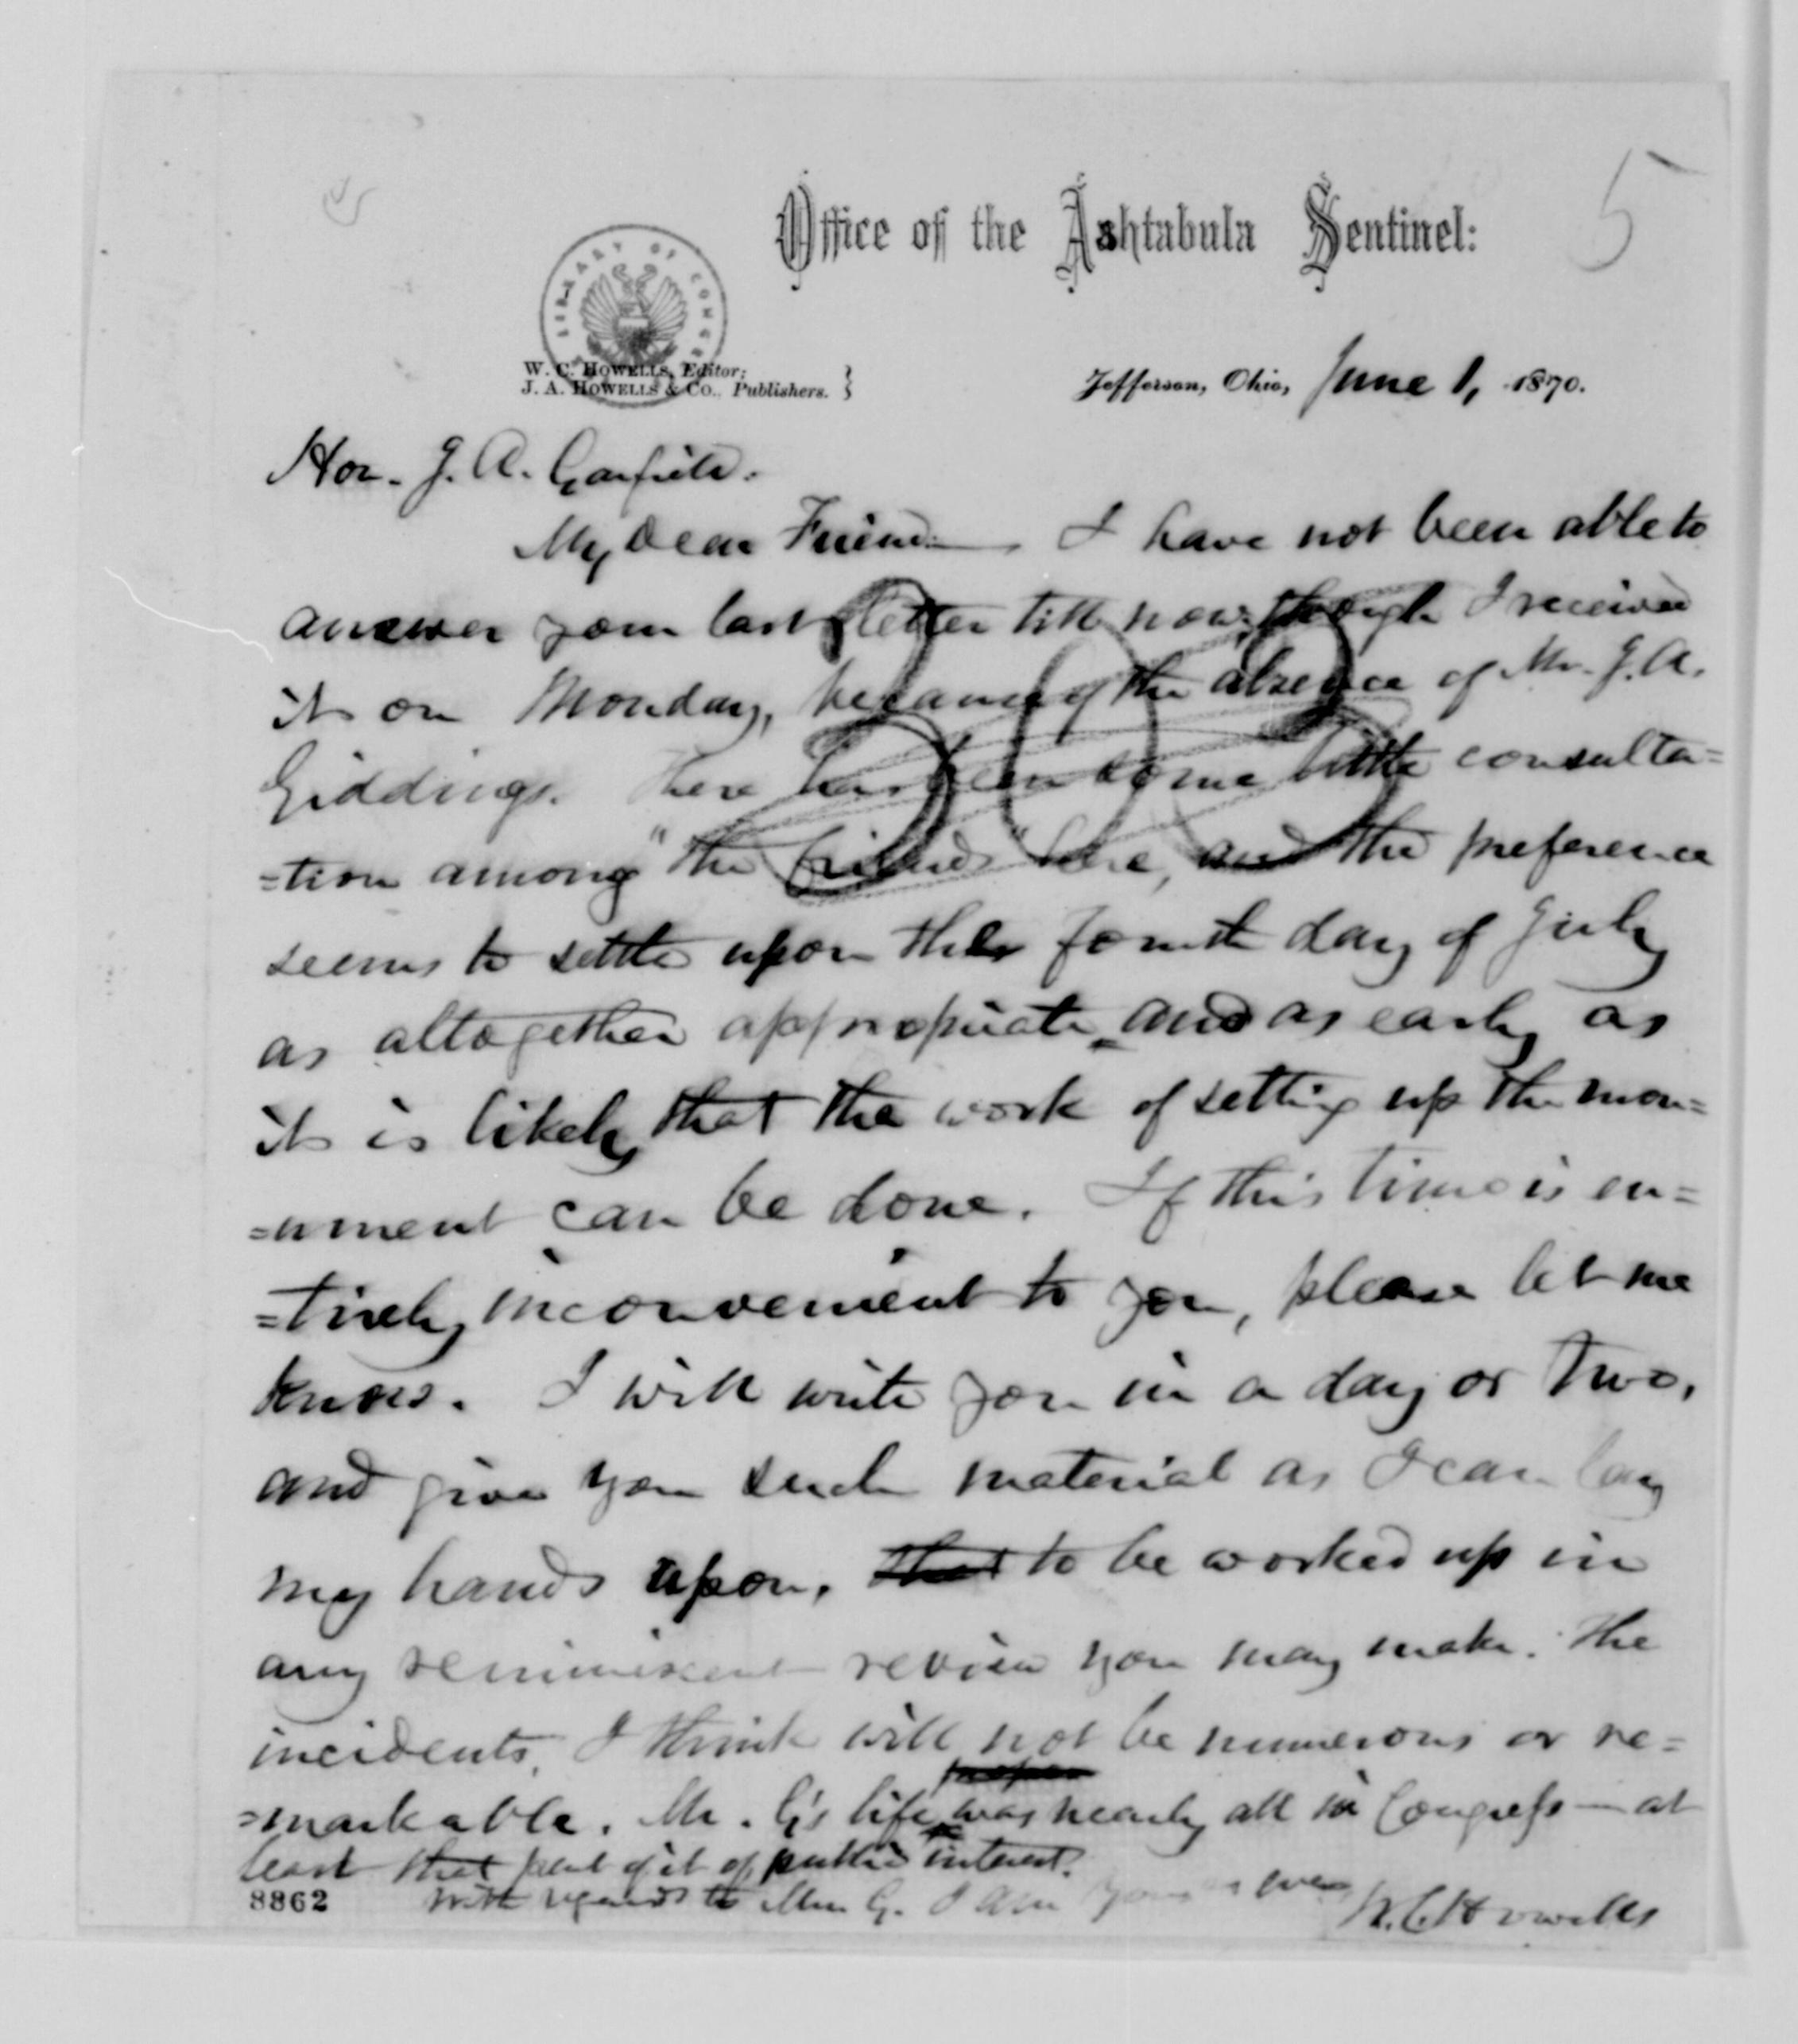 5
Office of the Ashtabula Sentinel:
LIBRARY OF CONGRE
W. C. HOWELLS, Editor;
J. A. HOWELLS & Co., Publishers.
Jefferson, Ohio, June 1, 1870.
Hon. J. A. Garfield.
My Dear Friend. I have not been able to
answer your last letter till now, though I received
it on Monday, because of the absence of Mr. J. A.
Giddings. There has been some little consulta=
=tion among "the friends" here, and the preference
seems to settle upon the fourth day of July
as altogether appropriate and as early as
it is likely that the work of setting up the mon=
=ument can be done. If this time is en=
=tirely inconvenient to you, please let me
know. I will write you in a day or two,
and give you such material as I can lay
my hands upon, that to be worked up in
any reminiscent review you may make. The
incidents, I think will not be numerous or re=
=markable. Mr. G's life was nearly all in Congress — at
least that part of it of public interest.
8862
With regards to Mrs G. I am yours as ever
W. C. Howells
303